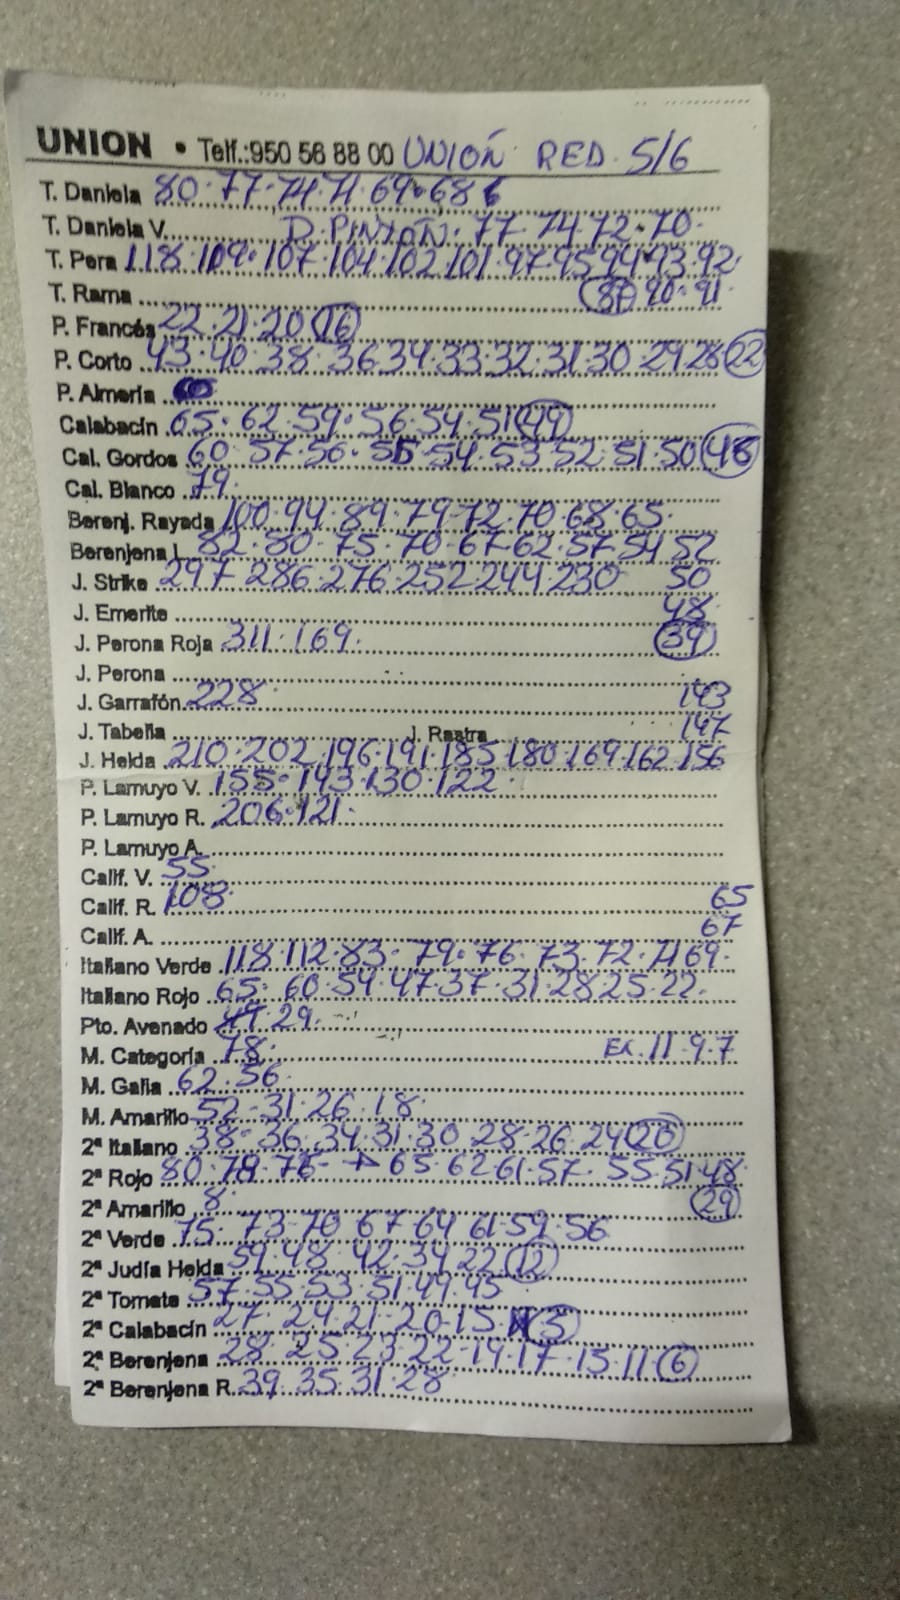 UNION • Telf.:950 56 88 00 UNIÓN RED. 5/6
T. Daniela 80·77·74·71·69·68
T. Daniela V. D. PINTÓN·77·74·72·70·
T. Pera 118·109·107·104·102·101·97·95·94·93·92·
T. Rama 87 90·91
P. Francés 22·21·20 16
P. Corto 43·40·38·36·34·33·32·31·30·29·28 22
P. Almería
Calabacín 65·62·59·56·54·51 44
Cal. Gordos 60·57·56·55·54·53·52·51·50 48
Cal. Blanco 79·
Berenj. Rayada 100·94·89·79·72·70·68·65·
Berenjena L. 82·80·75·70·67·62·57·54·52
J. Strike 297·286·276·252·244·230 50
J. Emerite 48
J. Perona Roja 311·169· 39
J. Perona
J. Garrafón 228· 143
J. Tabella J. Rastra 147
J. Helda 210·202·196·191·185·180·169·162·156
P. Lamuyo V. 155·143·130·122·
P. Lamuyo R. 206·121·
P. Lamuyo A.
Calif. V. 55
Calif. R. 108· 65
Calif. A. 67
Italiano Verde 118·112·83·79·76·73·72·71·69·
Italiano Rojo 65·60·54·47·37·31·28·25·22·
Pto. Avenado 29·
M. Categoría 78· Ex. 11·9·7
M. Galia 62·56·
M. Amarillo 52·31·26·18·
2ª Italiano 38·36·34·31·30·28·26·24 20
2ª Rojo 80·78·76 → 65·62·61·57·55·51·48
2ª Amarillo 8· 29
2ª Verde 75·73·70·67·64·61·59·56
2ª Judía Helda 54·48·42·34·22 12
2ª Tomate 57·55·53·51·49·45
2ª Calabacín 27·24·21·20·15 5
2ª Berenjena 28·25·23·22·19·17·15·11 6
2ª Berenjena R. 39·35·31·28